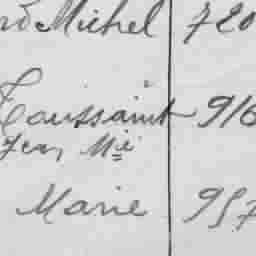 Michel 720
Toussaint 916
Jean Mie
Marie 957